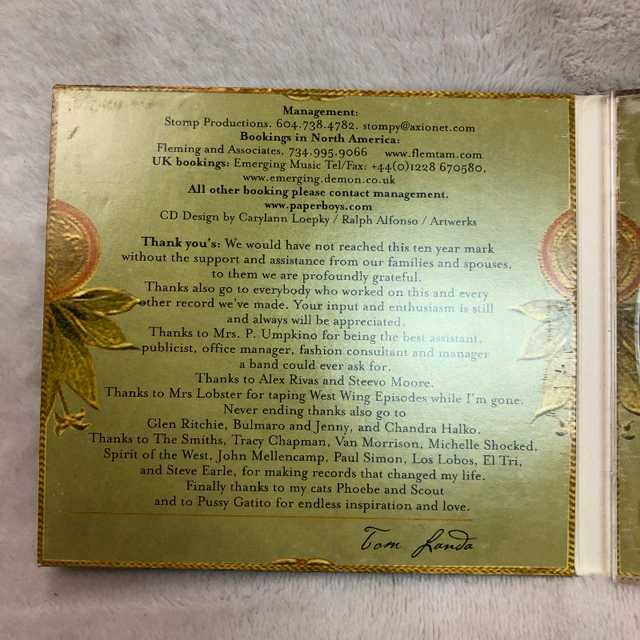 Management:
Stomp Productions. 604.738.4782. stompy@axionet.com
Bookings in North America:
Fleming and Associates. 734.995.9066 www.flemtam.com
UK bookings: Emerging Music Tel/Fax: +44(0)1228 670580,
www.emerging.demon.co.uk
All other booking please contact management.
www.paperboys.com
CD Design by Carylann Loepky / Ralph Alfonso / Artwerks
Thank you's: We would have not reached this ten year mark
without the support and assistance from our families and spouses,
to them we are profoundly grateful.
Thanks also go to everybody who worked on this and every
other record we've made. Your input and enthusiasm is still
and always will be appreciated.
Thanks to Mrs. P. Umpkino for being the best assistant,
publicist, office manager, fashion consultant and manager
a band could ever ask for.
Thanks to Alex Rivas and Steevo Moore.
Thanks to Mrs Lobster for taping West Wing Episodes while I'm gone.
Never ending thanks also go to
Glen Ritchie, Bulmaro and Jenny, and Chandra Halko.
Thanks to The Smiths, Tracy Chapman, Van Morrison, Michelle Shocked,
Spirit of the West, John Mellencamp, Paul Simon, Los Lobos, El Tri,
and Steve Earle, for making records that changed my life.
Finally thanks to my cats Phoebe and Scout
and to Pussy Gatito for endless inspiration and love.
Tom Landa